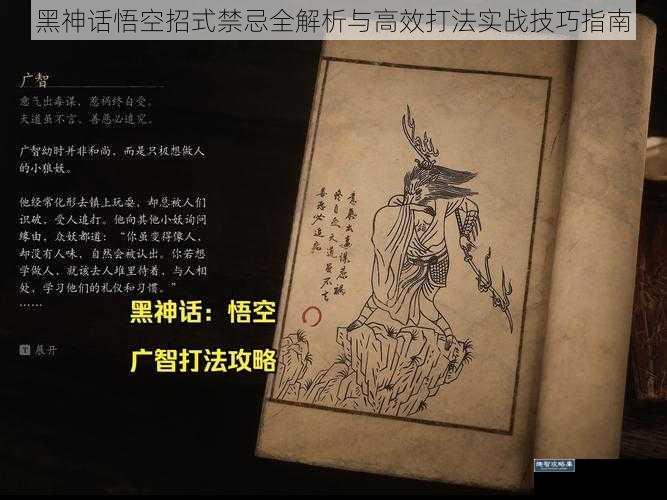 黑神话悟空招式禁忌全解析与高效打法实战技巧指南
广智
意气出毒谋，惹祸终自受。
天道虽不言，善恶必追究。
广智幼时并非和尚，而是只极想做人
的小狼妖。
他经常化形去镇上玩耍，却总被人们
识破，受人追打。他向其他小妖询问
缘由，众妖都道：“你虽变得像人，
却没有人味，自然会被认出。你若想
学做人，就该去人堆里待着，与人相
处，学习他们的礼仪和习惯。”
……
T 展开
意气出毒谋惹祸
终自受天道虽不言
善恶必追究
黑神话：悟空
广智打法攻略
施智攻略集